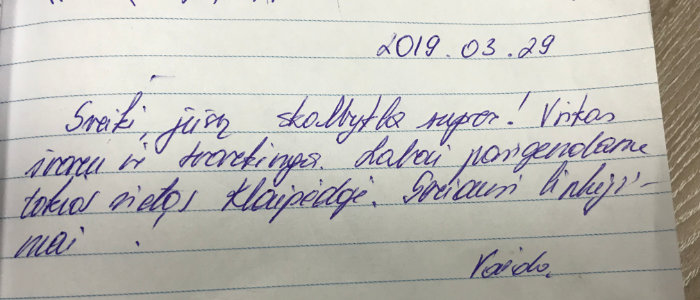 2019.03.29
Sveiki, jūsų skalbykla super! Viskas
švaru ir tvarkinga. Labai pasigendame
tokios vietos Klaipėdoje. Geriausi linkėji-
mai.
Vaida.